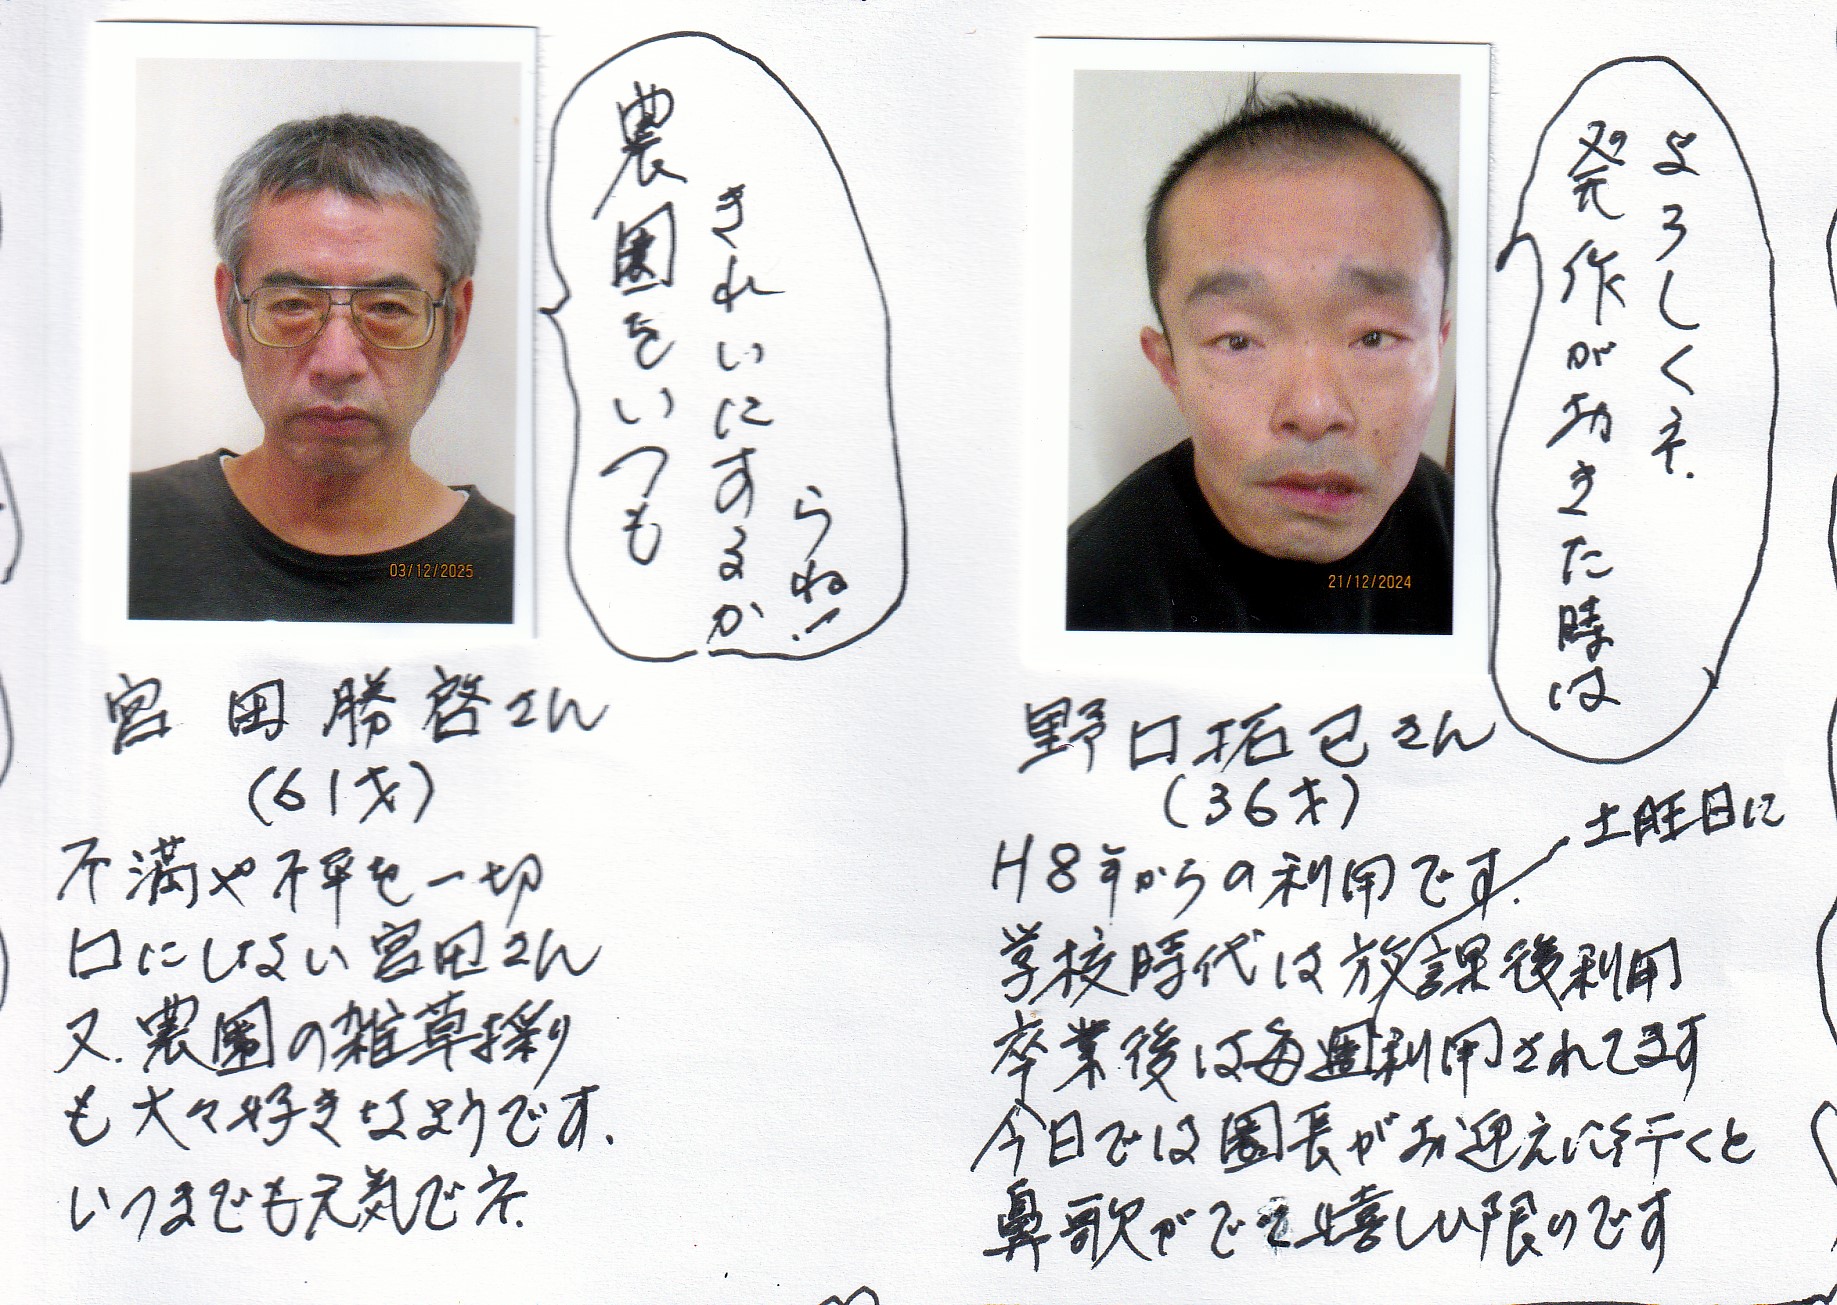 農園をいつも
きれいにするか
らね!
03/12/2025
宮田勝啓さん
(61才)
不満や不平を一切
口にしない宮田さん
又、農園の雑草採り
も大々好きなようです.
いつまでも元気でネ.
発作が功きた時は
よろしくネ.
21/12/2024
野口拓已さん
(36才)
土旺日に
H8年からの利用です.
学校時代は放課後利用
卒業後は毎週利用されてます
今日では園長がお迎えに行くと
鼻歌がでて嬉しい限りです